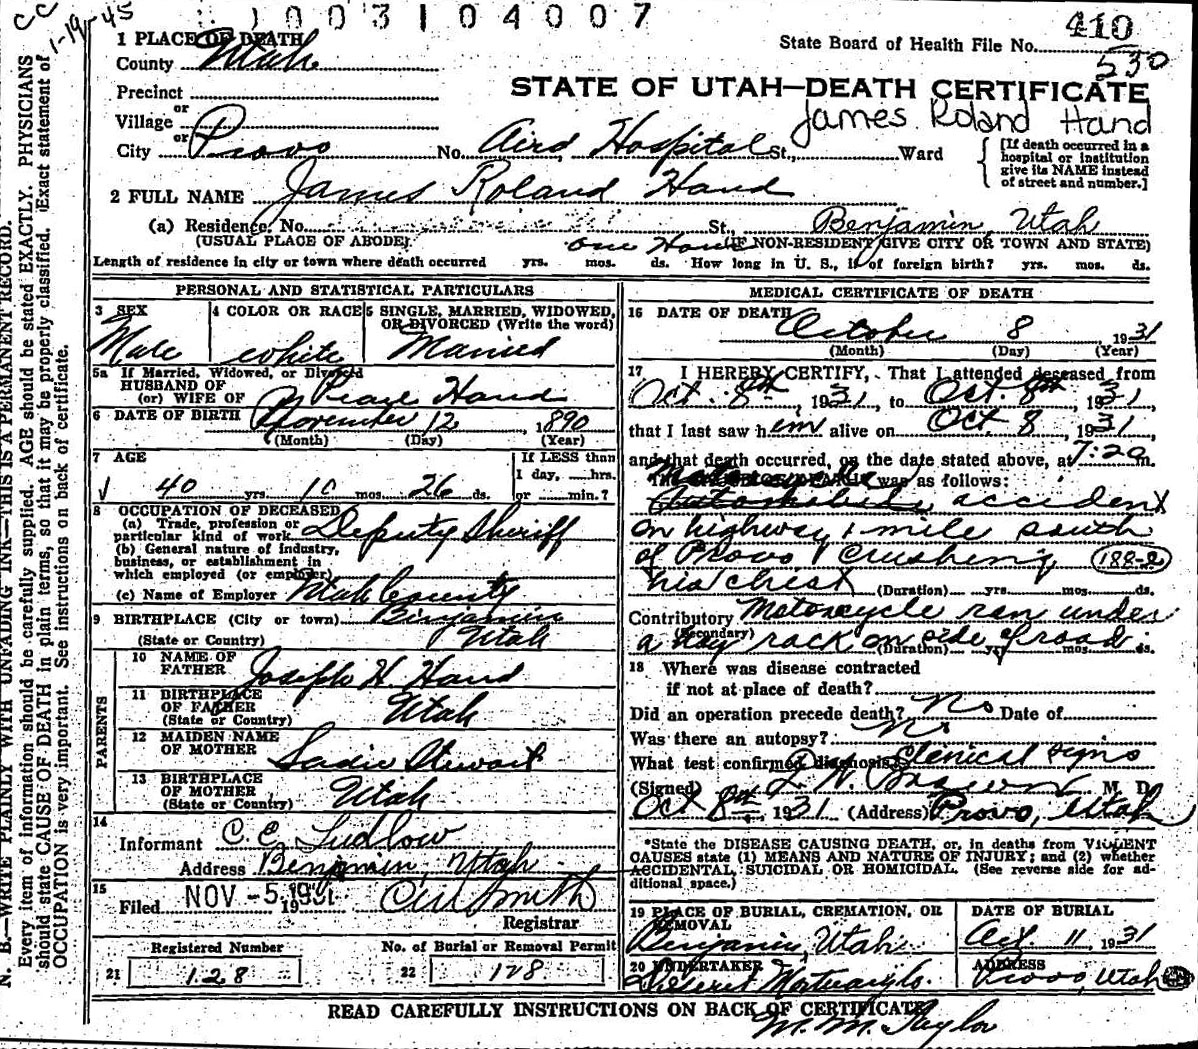 CC
1-19-45
1003104007
410
State Board of Health File No. 530
1 PLACE OF DEATH
County Utah
STATE OF UTAH—DEATH CERTIFICATE
Precinct
or
Village
James Roland Hand
or
City Provo No. Aird Hospital St., Ward
[If death occurred in a hospital or institution give its NAME instead of street and number.]
2 FULL NAME James Roland Hand
(a) Residence, No. St., Benjamin, Utah
(USUAL PLACE OF ABODE) (IF NON-RESIDENT GIVE CITY OR TOWN AND STATE)
one
Length of residence in city or town where death occurred yrs. mos. ds. How long in U. S., is of foreign birth? yrs. mos. ds.
PERSONAL AND STATISTICAL PARTICULARS
3 SEX
Male
4 COLOR OR RACE
white
5 SINGLE, MARRIED, WIDOWED, OR DIVORCED (Write the word)
Married
5a If Married, Widowed, or Divorced
HUSBAND OF
(or) WIFE OF Hand
6 DATE OF BIRTH November 12, 1890
(Month) (Day) (Year)
7 AGE
40 yrs. 10 mos. 26 ds.
If LESS than
1 day, hrs.
or min.?
8 OCCUPATION OF DECEASED
(a) Trade, profession or
particular kind of work Deputy Sheriff
(b) General nature of industry,
business, or establishment in
which employed (or employer)
(c) Name of Employer Utah County
9 BIRTHPLACE (City or town) Benjamin
(State or Country) Utah
PARENTS
10 NAME OF
FATHER Joseph H. Hand
11 BIRTHPLACE
OF FATHER
(State or Country) Utah
12 MAIDEN NAME
OF MOTHER Sadie Stewart
13 BIRTHPLACE
OF MOTHER
(State or Country) Utah
14
Informant C. E. Ludlow
Address Benjamin, Utah
15
Filed NOV -5 1931 Smith
Registrar
Registered Number
21 128
No. of Burial or Removal Permit
22 128
MEDICAL CERTIFICATE OF DEATH
16 DATE OF DEATH October 8, 1931
(Month) (Day) (Year)
17 I HEREBY CERTIFY, That I attended deceased from
Oct. 8th, 1931, to Oct. 8th, 1931,
that I last saw h em alive on Oct 8, 1931,
and that death occurred, on the date stated above, a 7:20 m.
was as follows:
Automobile accident
on highway 1 mile south
of Provo, Crushing
188-2
his chest (Duration) yrs. mos. ds.
Contributory Motorcycle ran under
(Secondary)
a hay rack on side of road.
(Duration) yrs. mos. ds.
18 Where was disease contracted
if not at place of death?
Did an operation precede death? No Date of
Was there an autopsy? No
What test confirmed diagnosis? Clenical signs
(Signed) M. D.
Oct 8th, 1931 (Address) Provo, Utah
*State the DISEASE CAUSING DEATH, or, in deaths from VIOLENT
CAUSES state (1) MEANS AND NATURE OF INJURY; and (2) whether
ACCIDENTAL, SUICIDAL OR HOMICIDAL. (See reverse side for ad-
ditional space.)
19 PLACE OF BURIAL, CREMATION, OR
REMOVAL
Benjamin, Utah
DATE OF BURIAL
Oct. 11, 1931
20 UNDERTAKER
Deseret Mortuary Co.
ADDRESS
Provo, Utah
READ CAREFULLY INSTRUCTIONS ON BACK OF CERTIFICATE
M. M. Taylor
N. B.—WRITE PLAINLY WITH UNFADING INK—THIS IS A PERMANENT RECORD.
Every item of information should be carefully supplied. AGE should be stated EXACTLY. PHYSICIANS
should state CAUSE OF DEATH in plain terms, so that it may be properly classified. Exact statement of
OCCUPATION is very important. See instructions on back of certificate.